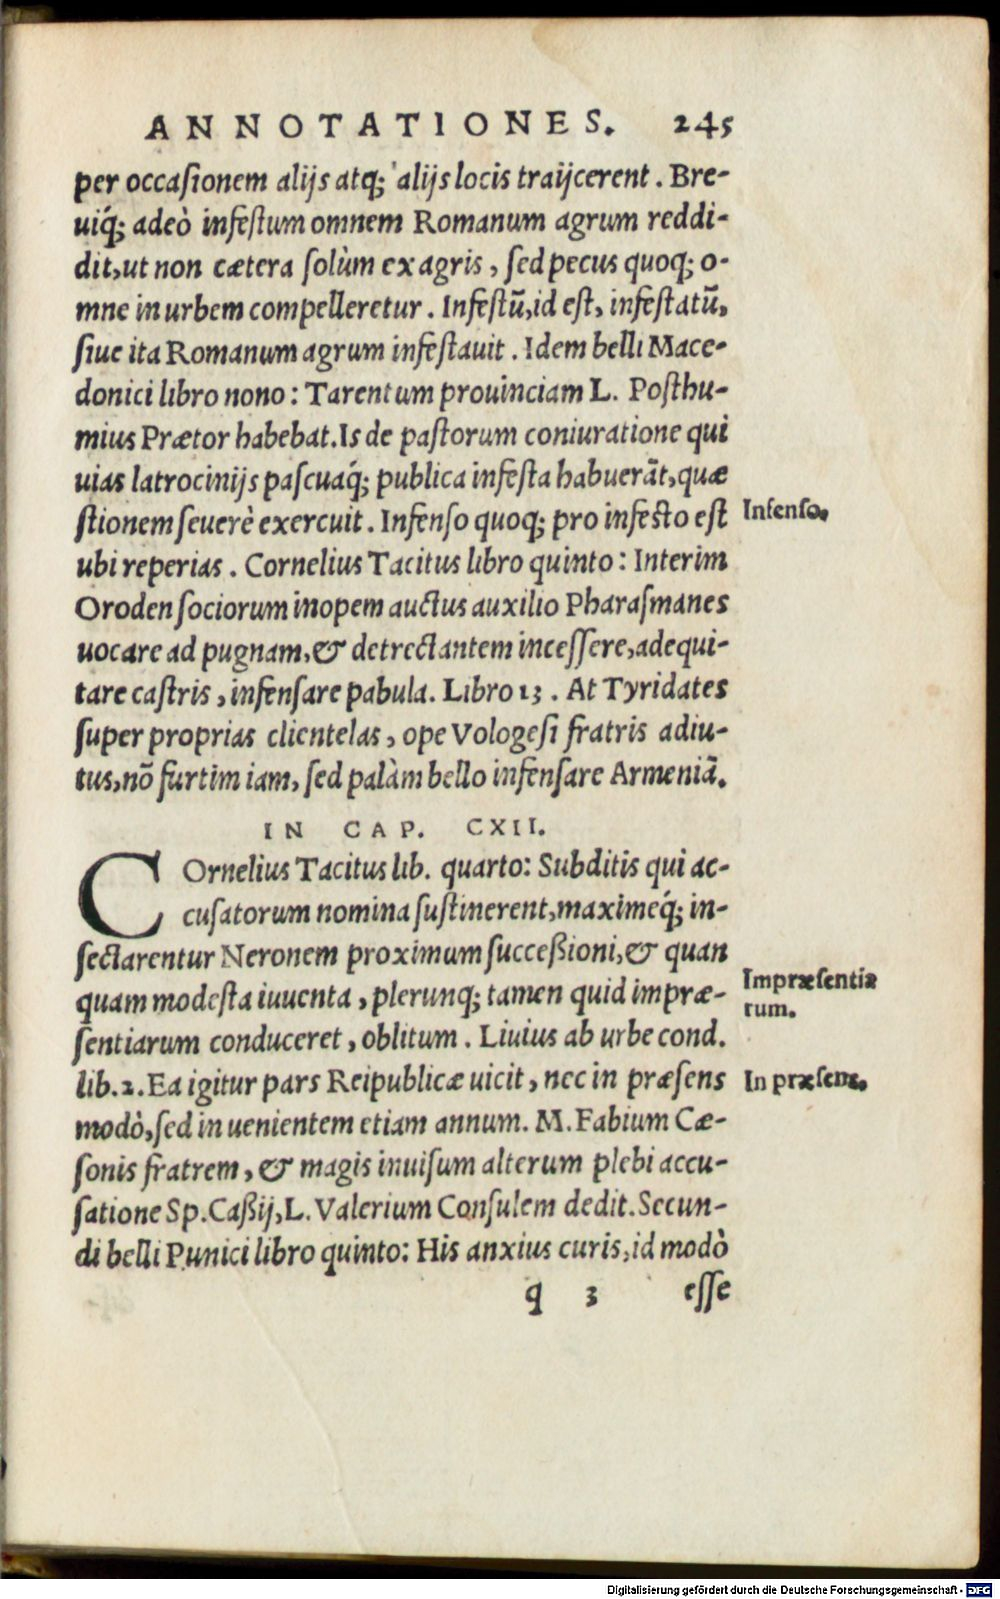 ANNOTATIONES. 245
per occaſionem alijs atq; alijs locis traijcerent. Bre-
uiq́; adeò infeſtum omnem Romanum agrum reddi-
dit, ut non cætera ſolùm ex agris, ſed pecus quoq; o-
mne in urbem compelleretur. Infeſtũ, id eſt, infeſtatũ,
ſiue ita Romanum agrum infeſtauit. Idem belli Mace-
donici libro nono: Tarentum prouinciam L. Poſthu-
mius Prætor habebat. Is de paſtorum coniuratione qui
uias latrocinijs paſcuaq́; publica infeſta habuerãt, quæ
ſtionem ſeuerè exercuit. Infenſo quoq; pro infeſto eſt
Infenſo.
ubi reperias. Cornelius Tacitus libro quinto: Interim
Oroden ſociorum inopem auctus auxilio Pharaſmanes
uocare ad pugnam, & detrectantem inceſſere, adequi-
tare caſtris, infenſare pabula. Libro 13. At Tyridates
ſuper proprias clientelas, ope Vologeſi fratris adiu-
tus, nõ furtim iam, ſed palàm bello infenſare Armeniã.
IN CAP. CXII.
COrnelius Tacitus lib. quarto: Subditis qui ac-
cuſatorum nomina ſuſtinerent, maximeq́; in-
ſectarentur Neronem proximum ſucceßioni, & quan
quam modeſta iuuenta, plerunq; tamen quid impræ-
Impræſentia
rum.
ſentiarum conduceret, oblitum. Liuius ab urbe cond.
lib. 2. Ea igitur pars Reipublicæ uicit, nec in præſens
In præſens.
modò, ſed in uenientem etiam annum. M. Fabium Cæ-
ſonis fratrem, & magis inuiſum alterum plebi accu-
ſatione Sp. Caßij, L. Valerium Conſulem dedit. Secun-
di belli Punici libro quinto: His anxius curis, id modò
q 3 eſſe
Digitalisierung gefördert durch die Deutsche Forschungsgemeinschaft - DFG